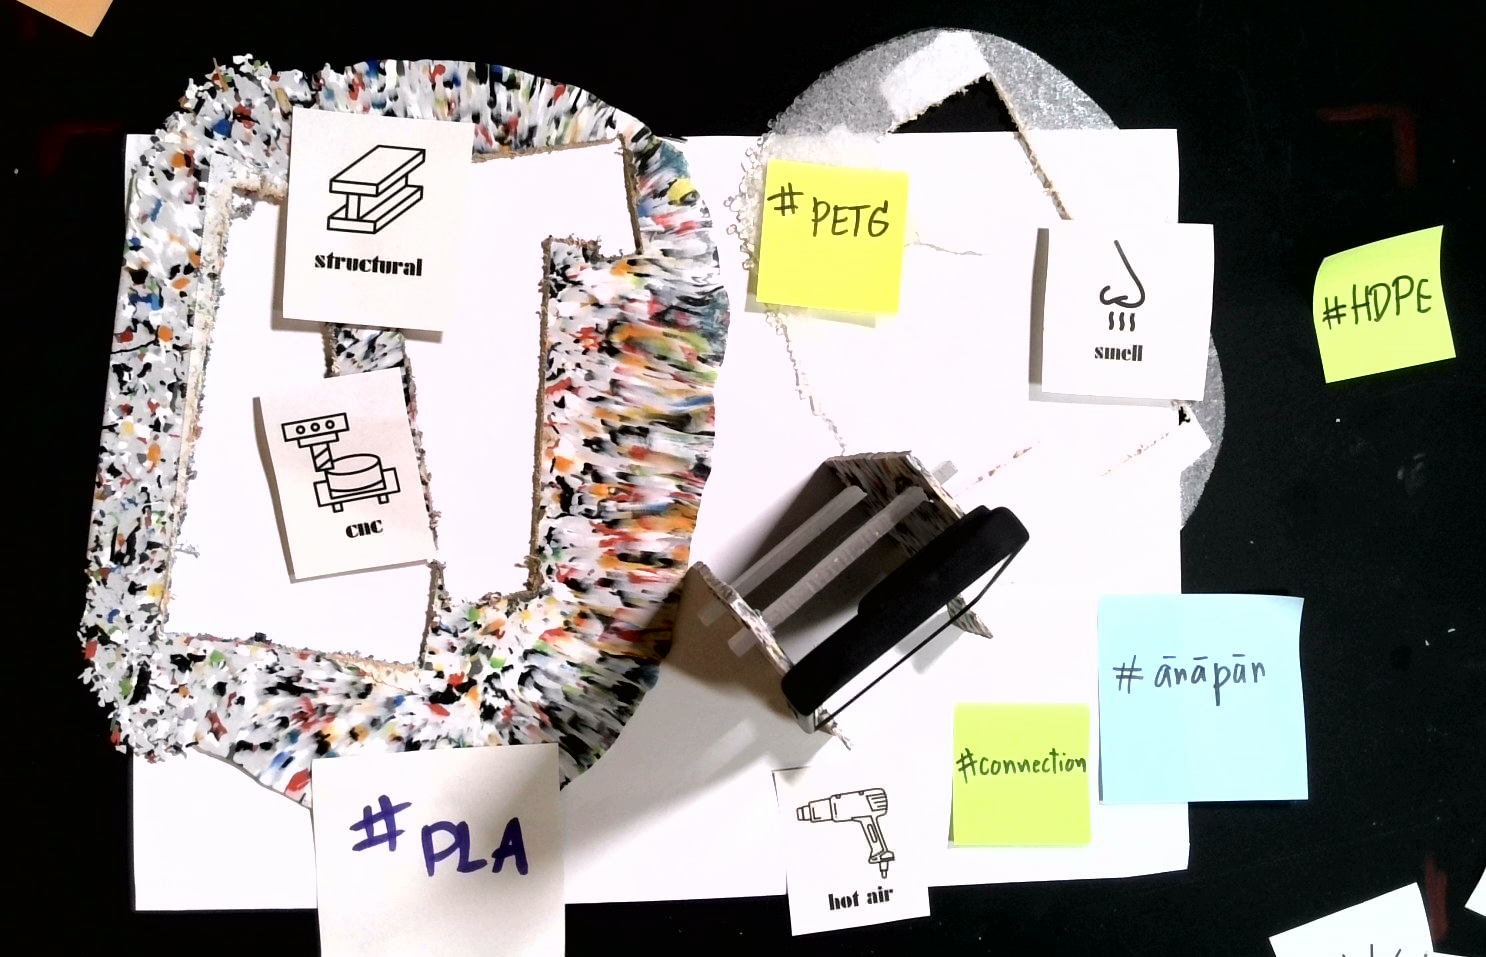 structural
# PETG
smell
#HDPE
cnc
# ānāpān
#connection
# PLA
hot air